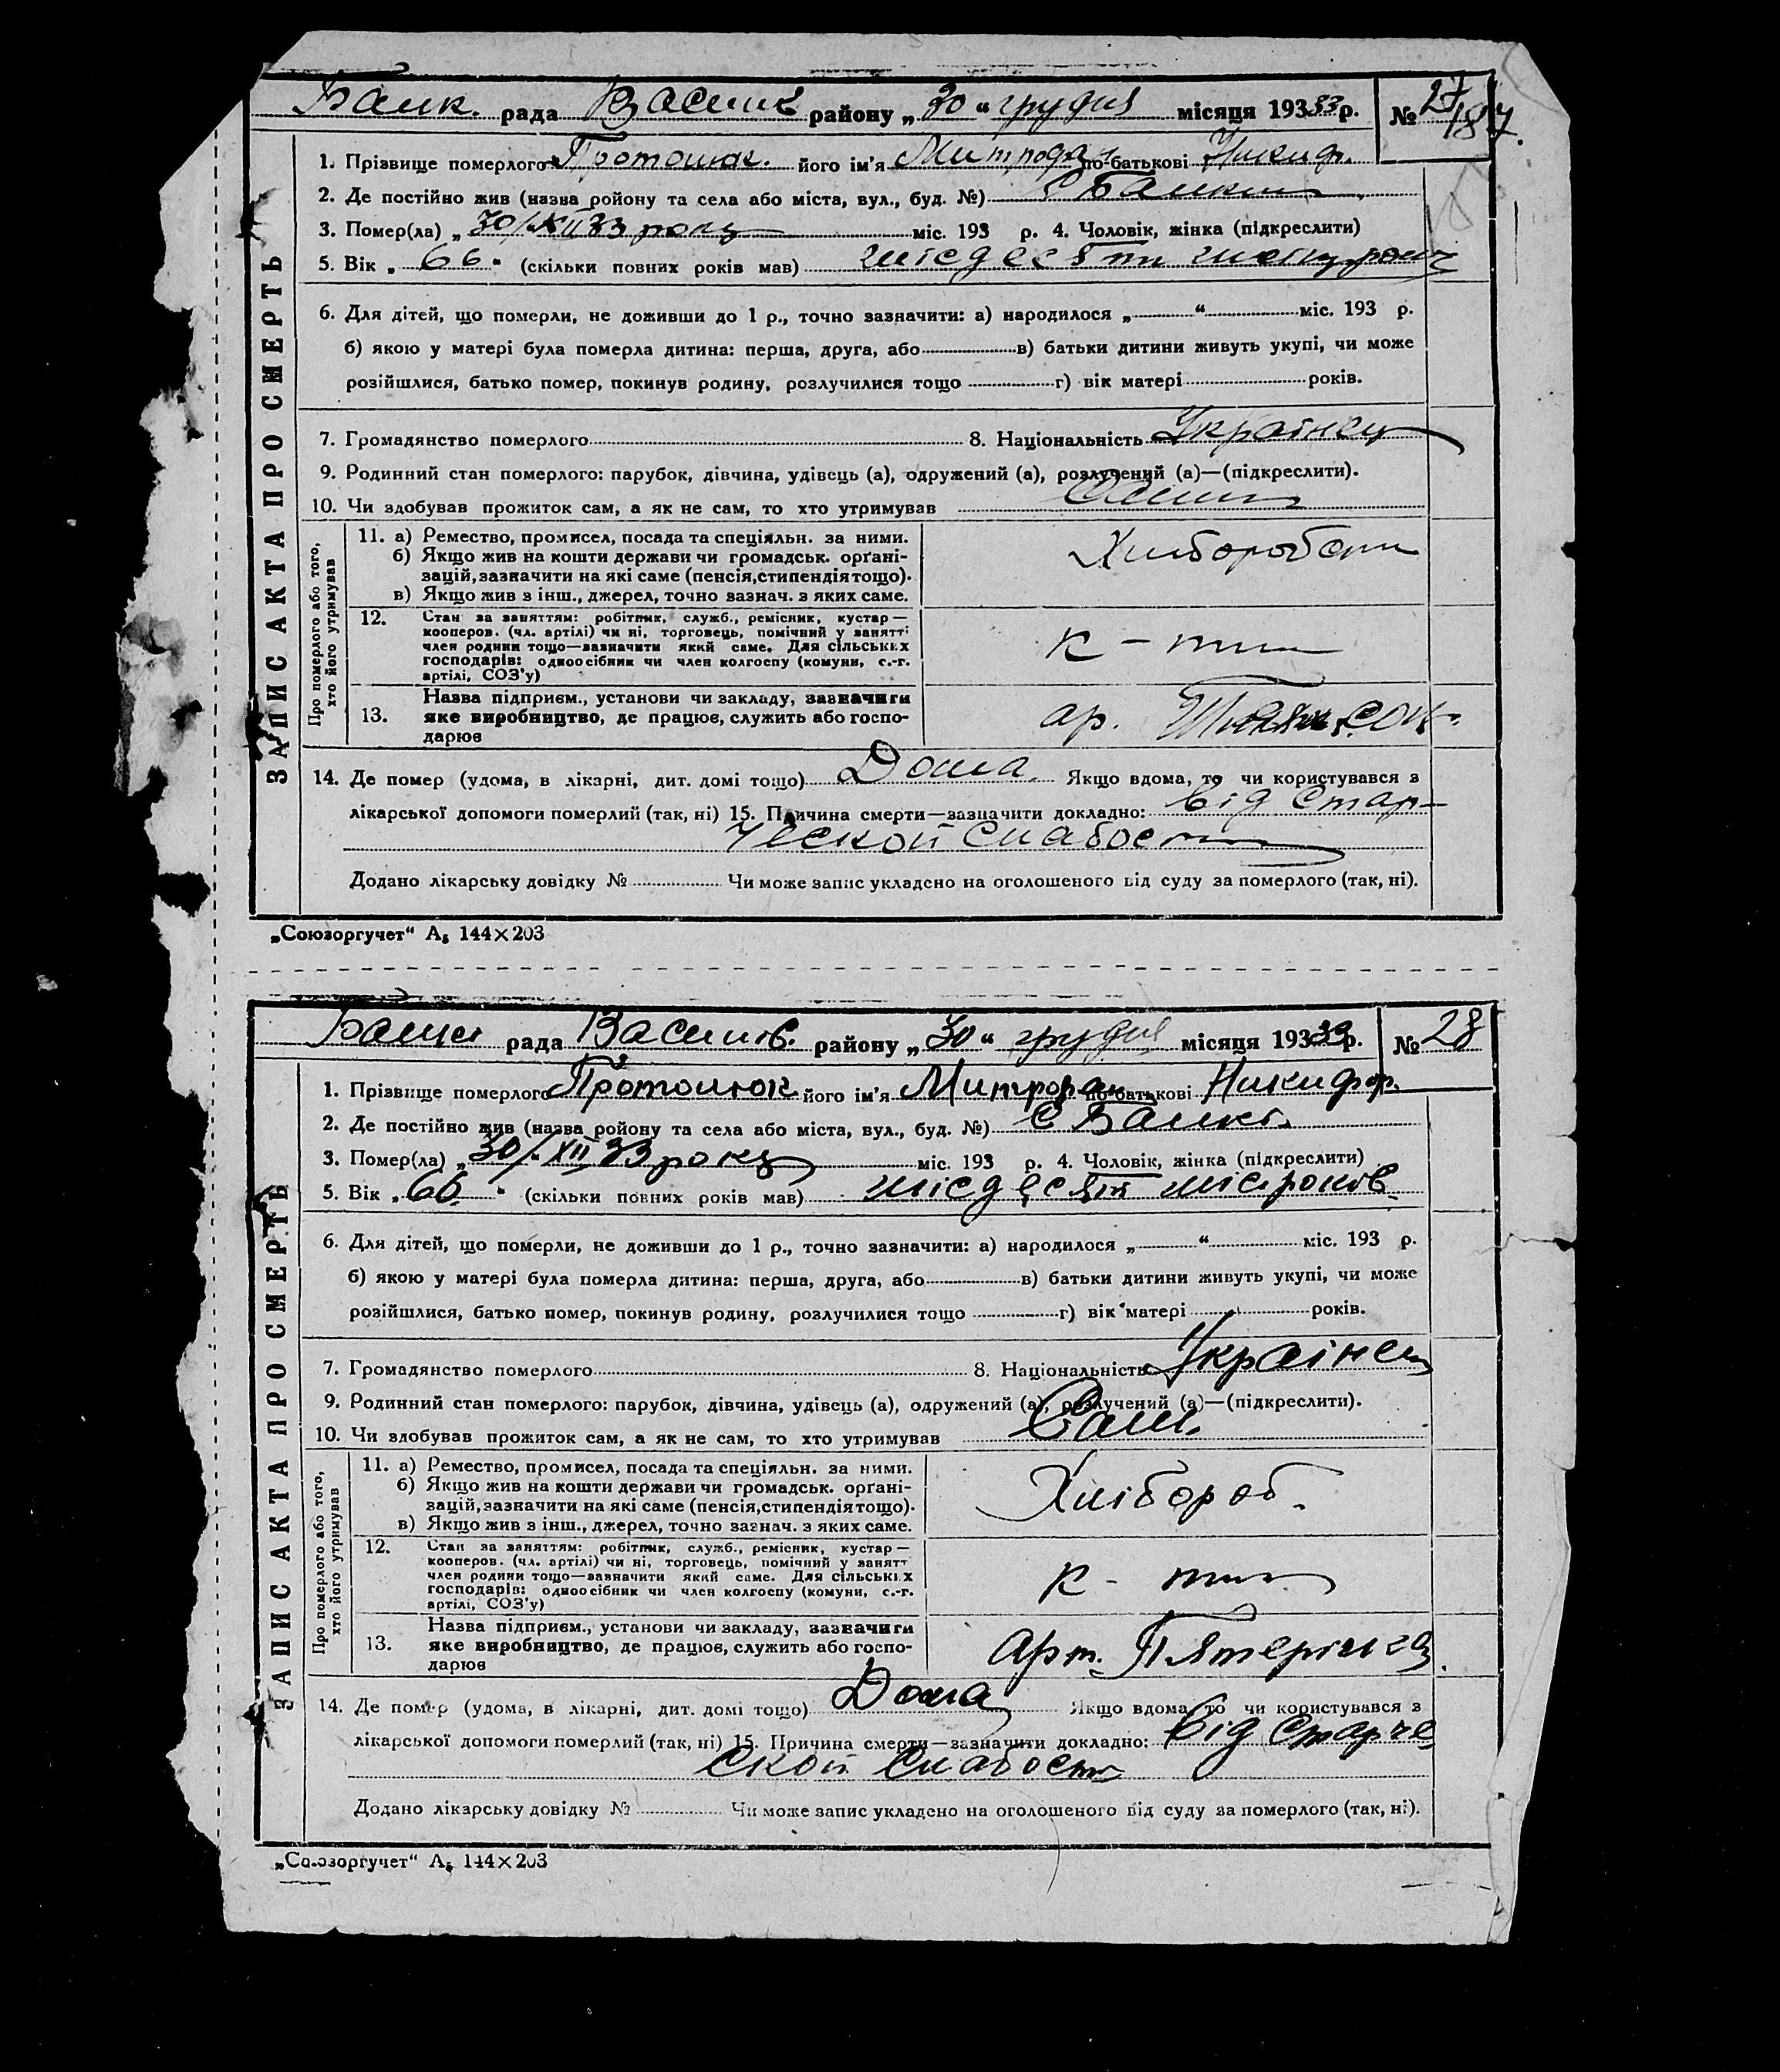 Балк. рада Васильк району „30“ грудня місяця 1933 р. № 27
187.
1. Прізвище померлого Протошюк. його ім'я Митрофан по-батькові Никиф.
2. Де постійно жив (назва ройону та села або міста, вул., буд. №)
3. Помер(ла) „30/XII 33 року міс. 193 р. 4. Чоловік, жінка (підкреслити)
5. Вік „66“ (скільки повних років мав) шісдесять
6. Для дітей, що померли, не доживши до 1 р., точно зазначити: а) народилося „ “ міс. 193 р.
б) якою у матері була померла дитина: перша, друга, або в) батьки дитини живуть укупі, чи може
розійшлися, батько помер, покинув родину, розлучилися тощо г) вік матері років.
7. Громадянство померлого 8. Національність Українец
9. Родинний стан померлого: парубок, дівчина, удівець (а), одружений (а), розлучений (а)—(підкреслити).
10. Чи здобував прожиток сам, а як не сам, то хто утримував
ЗАПИС АКТА ПРО СМЕРТЬ
Про померлого або того,
хто його утримував
11. а) Ремество, промисел, посада та спеціяльн. за ними.
б) Якщо жив на кошти держави чи громадськ. орґані-
зацій, зазначити на які саме (пенсія, стипендія тощо).
в) Якщо жив з інш., джерел, точно зазнач. з яких саме.
12. Стан за заняттям: робітник, служб., ремісник, кустар—
кооперов. (чл. артілі) чи ні, торговець, помічний у занятті
член родини тощо—зазначити який саме. Для сільських
господарів: одноосібник чи член колгоспу (комуни, с.-г.
артілі, СОЗ'у)
13. Назва підприєм., установи чи закладу, зазначити
яке виробництво, де працює, служить або госпо-
дарює
ар.
14. Де помер (удома, в лікарні, дит. домі тощо) Дома. Якщо вдома, то чи користувався з
лікарської допомоги померлий (так, ні) 15. Причина смерти—зазначити докладно: від стар-
ческой слабости
Додано лікарську довідку № Чи може запис укладено на оголошеного від суду за померлого (так, ні).
„Союзоргучет“ А₅ 144×203
рада Васильків. району „30“ грудня місяця 1933 р. № 28
1. Прізвище померлого Протошюк його ім'я Митрофан по-батькові Никифор.
2. Де постійно жив (назва ройону та села або міста, вул., буд. №) с
3. Помер(ла) „30/XII 33 року міс. 193 р. 4. Чоловік, жінка (підкреслити)
5. Вік „66“ (скільки повних років мав) шісдесят шіс років
6. Для дітей, що померли, не доживши до 1 р., точно зазначити: а) народилося „ “ міс. 193 р.
б) якою у матері була померла дитина: перша, друга, або в) батьки дитини живуть укупі, чи може
розійшлися, батько помер, покинув родину, розлучилися тощо г) вік матері років.
7. Громадянство померлого 8. Національність Українец
9. Родинний стан померлого: парубок, дівчина, удівець (а), одружений (а), розлучений (а)—(підкреслити).
10. Чи здобував прожиток сам, а як не сам, то хто утримував Сам.
ЗАПИС АКТА ПРО СМЕРТЬ
Про померлого або того,
хто його утримував
11. а) Ремество, промисел, посада та спеціяльн. за ними.
б) Якщо жив на кошти держави чи громадськ. орґані-
зацій, зазначити на які саме (пенсія, стипендія тощо).
в) Якщо жив з інш., джерел, точно зазнач. з яких саме.
Хлібороб.
12. Стан за заняттям: робітник, служб., ремісник, кустар—
кооперов. (чл. артілі) чи ні, торговець, помічний у занятт
член родини тощо—зазначити який саме. Для сільських
господарів: одноосібник чи член колгоспу (комуни, с.-г.
артілі, СОЗ'у)
13. Назва підприєм., установи чи закладу, зазначити
яке виробництво, де працює, служить або госпо-
дарює
арт. Пятерічка
14. Де помер (удома, в лікарні, дит. домі тощо) Дома Якщо вдома, то чи користувався з
лікарської допомоги померлий (так, ні) 15. Причина смерти—зазначити докладно: від старче
ской слабости
Додано лікарську довідку № Чи може запис укладено на оголошеного від суду за померлого (так, ні).
„Союзоргучет“ А₅ 144×203